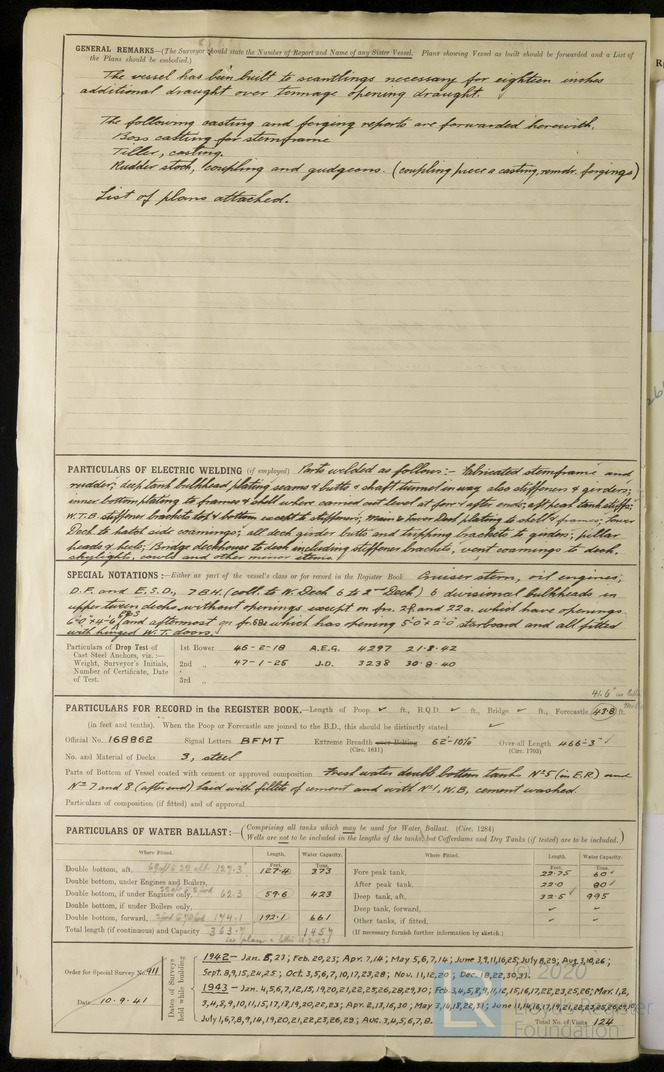 GENERAL REMARKS—(The Surveyor should state the Number of Report and Name of any Sister Vessel. Plans showing Vessel as built should be forwarded and a List of
the Plans should be embodied.)
The vessel has been built to scantlings necessary for eighteen inches
additional draught over tonnage opening draught.
The following casting and forging reports are forwarded herewith.
Boss casting for sternframe
Tiller, casting.
Rudder stock, coupling and gudgeons. (coupling piece a casting, remdr. forgings)
List of plans attached.
PARTICULARS OF ELECTRIC WELDING (if employed) Parts welded as follows:- Fabricated sternframe and
rudder; deep tank bulkhead plating seams & butts & shaft tunnel in way also stiffeners & girders;
inner bottom plating to frames & shell where carried out level at fore & after ends; aft peak tank stiffs;
W.T.B. stiffener brackets top & bottom except to stiffeners; Main & lower Deck plating to shell & frames; lower
Deck to hatch side coamings; all deck girder butts and tripping brackets to girders; pillar
heads & heels; Bridge deckhouse to deck including stiffener brackets, vent coamings to deck,
skylights, cowls and other minor items.
SPECIAL NOTATIONS:—Either as part of the vessel's class or for record in the Register Book Cruiser stern, oil engines,
D.F. and E.S.D., 7 B.H. (coll. to W. Deck 6 to 2nd Deck) 6 divisional bulkheads in
upper tween decks, without openings except on frs. and 22a. which have openings
6'-0" x 4'-6" and aftermost on fr. 68a which has opening 5'-0" x 2'-0" starboard and all fitted
with hinged W.T. doors.
Particulars of Drop Test of
Cast Steel Anchors, viz.:—
Weight, Surveyor's Initials,
Number of Certificate, Date
of Test.
1st Bower 46-2-18 A.E.G. 4297 21.8.42
2nd „ 47-1-25 J.D. 3238 30.9.40
3rd „
41.6"
PARTICULARS FOR RECORD in the REGISTER BOOK.—Length of Poop ✓ ft., R.Q.D. ✓ ft., Bridge ✓ ft., Forecastle 43.8 ft.
(in feet and tenths). When the Poop or Forecastle are joined to the B.D., this should be distinctly stated ✓
Official No. 168862 Signal Letters BFMT Extreme Breadth over Belting (Circ. 1611) 62'-10⅞" Over-all Length (Circ. 1703) 466'-3"
No. and Material of Decks 3, steel
Parts of Bottom of Vessel coated with cement or approved composition Fresh water double bottom tank Nº5 (in E.R) and
Nº 7 and 8 (aft end) laid with fillets of cement and with Nº1, W.B, cement washed.
Particulars of composition (if fitted) and of approval
PARTICULARS OF WATER BALLAST:— (Comprising all tanks which may be used for Water Ballast. (Circ. 1284)
Wells are not to be included in the lengths of the tanks; but Cofferdams and Dry Tanks (if tested) are to be included.)
Where Fitted. Length. Feet. Water Capacity. Tons.
Double bottom, aft, 127.3 127.4 373
Double bottom, under Engines and Boilers,
Double bottom, if under Engines only, 62.3 59.6 423
Double bottom, if under Boilers only,
Double bottom, forward, 174.1 192.1 661
Total length (if continuous) and Capacity 363.7 1457
Where Fitted. Length. Feet. Water Capacity. Tons.
Fore peak tank, 22.75 60
After peak tank, 22.0 80
Deep tank, aft, 32.5 995
Deep tank, forward, ✓ ✓
Other tanks, if fitted, ✓ ✓
(If necessary furnish further information by sketch.)
Order for Special Survey No. 911
Date 10.9.41
Dates of Surveys held while building
1942 - Jan. 8, 23; Feb. 20, 23; Apr. 7, 14; May 5,6,7,14; June 3,9,11,16,25; July 8,29; Aug. 3,10,26;
Sept. 8,9,15,24,25; Oct. 3,5,6,7,10,17,23,28; Nov. 11,12,20; Dec. 18,22,30,31.
1943 - Jan. 4,5,6,7,12,15,19,20,21,22,25,26,28,29,30; Feb. 3,4,5,8,9,11,12,15,16,17,22,23,25,26; Mar. 1,2,
3,4,8,9,10,11,15,17,18,19,20,22,23; Apr. 2,13,16,30; May 3,14,18,22,31; June
July 1,6,7,8,9,14,19,20,21,22,23,26,29; Aug. 3,4,5,6,7,8.
Total No. of Visits 124
© 2020
Lloyd's Register
Foundation
LR